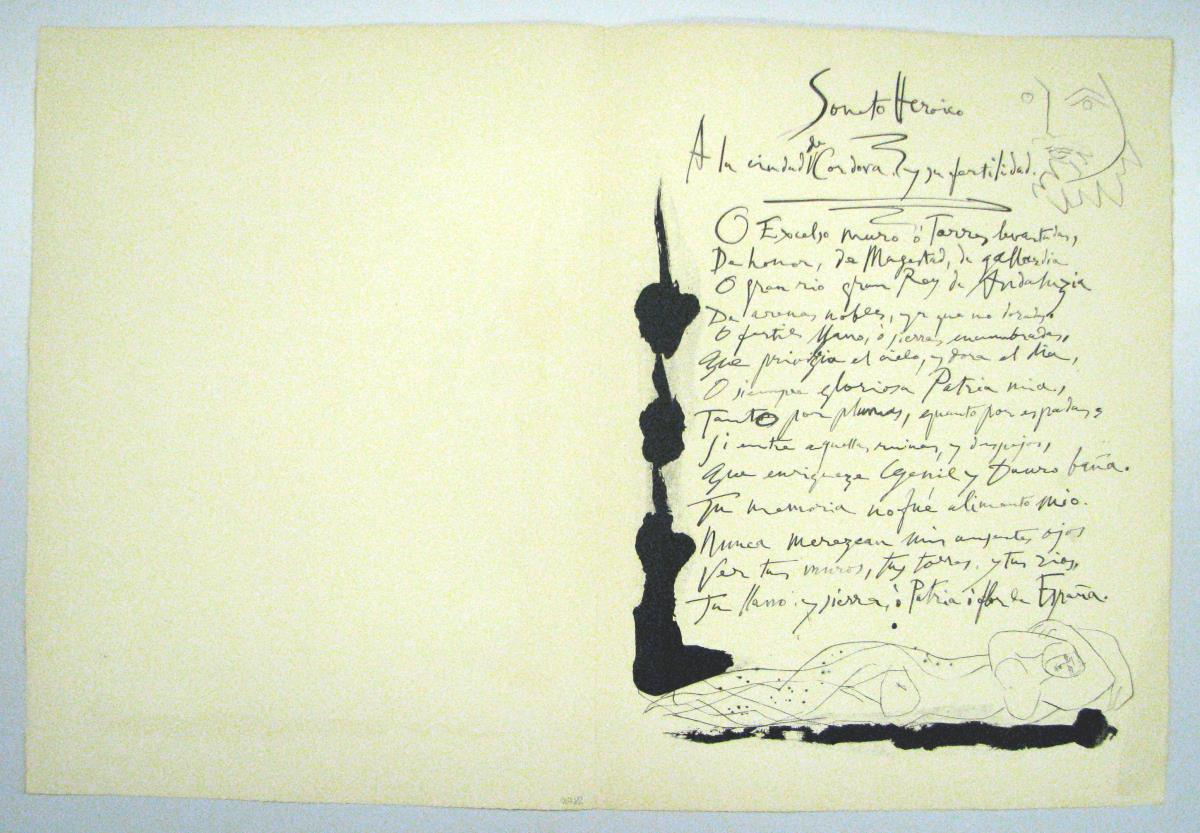 Soneto Heroico
A la ciudad de Cordova. y su fertilidad.
O Excelso muro ò Torres levantadas,
De honor, de Magestad, de gallardia
O gran rio gran Rey de Andaluzia
De arenas nobles, ya que no doradas
O fertil llano, ò sierras encumbradas,
Que privilegia el cielo, y dora el dia,
O siempre gloriosa Patria mia,
Tanto por plumas, quanto por espadas,
Si entre aquellas ruinas, y despojos,
Que enriqueze Genil y Dauro baña.
Tu memoria no fué alimento mio.
Nunca merezcan mis ausentes ojos
Ver tus muros, tus torres, y tus rios,
Tu llano, y sierra, ò Patria ò flor de España.